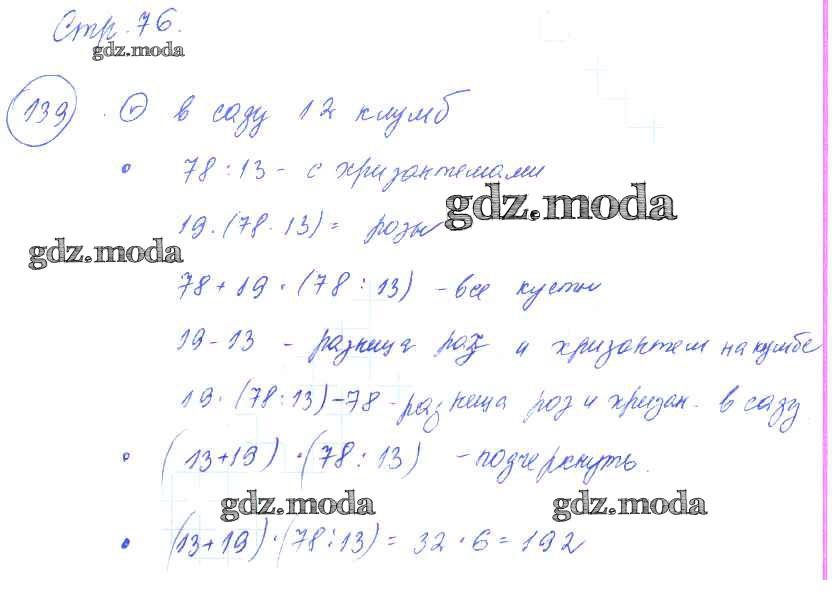 Стр. 76.
gdz.moda
139 в саду 12 клумб
78 : 13 - с хризантемами
gdz.moda
19 · (78 · 13) = розы
gdz.moda
78 + 19 · (78 : 13) - все кусты
19 - 13 - разница роз и хризантем на кумбе
19 · (78 : 13) - 78 - разнеца роз и хризан. в саду
(13 + 19) · (78 : 13) - подчеркнуть.
gdz.moda gdz.moda
(13 + 19) · (78 : 13) = 32 · 6 = 192